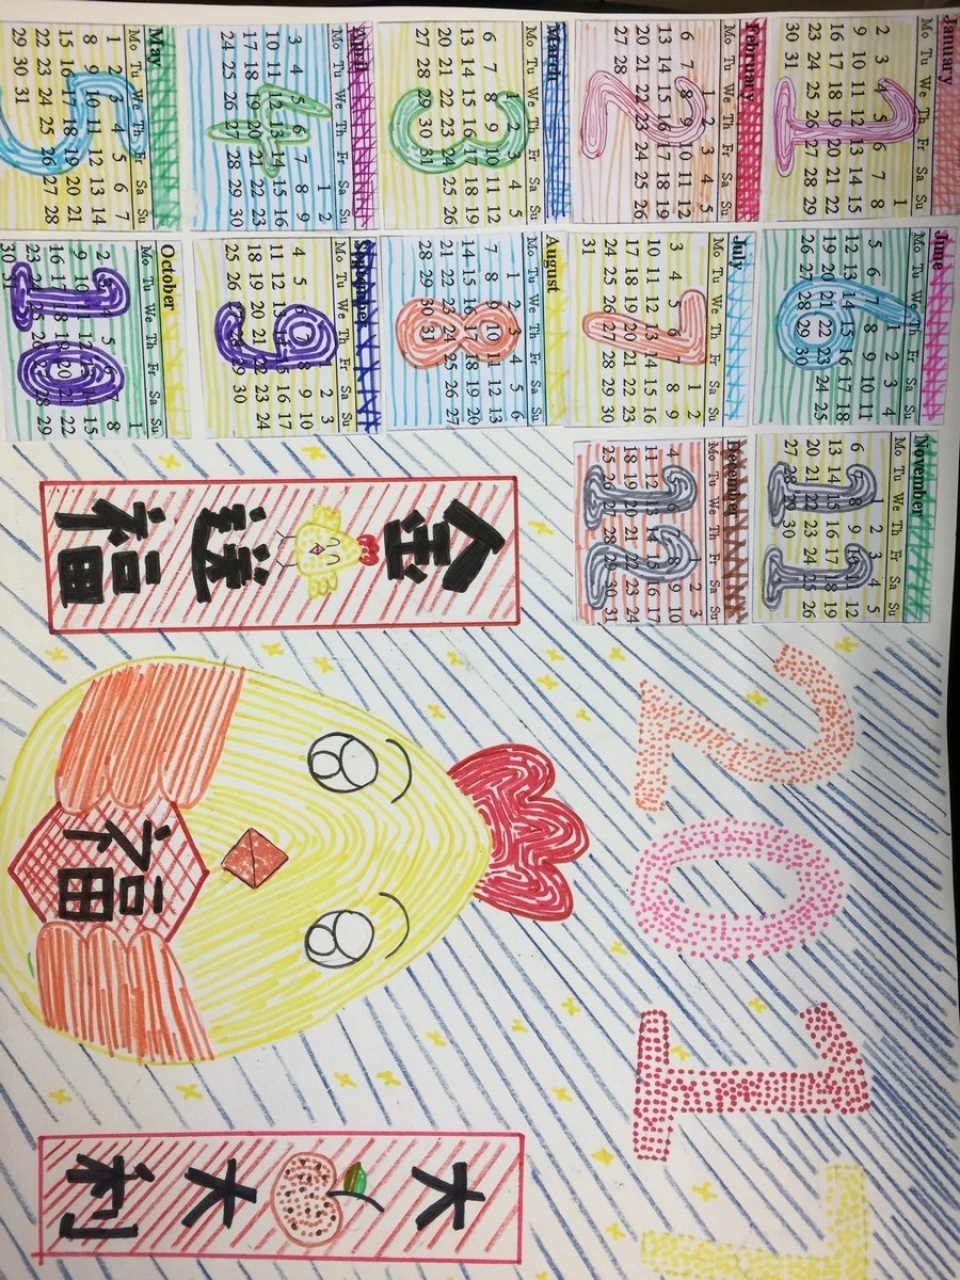 January
Mo Tu We Th Fr Sa Su
1
2 3 4 5 6 7 8
9 10 11 12 13 14 15
16 17 18 19 20 21 22
23 24 25 26 27 28 29
30 31
1
June
Mo Tu We Th Fr Sa Su
1 2 3 4
5 6 7 8 9 10 11
12 13 14 15 16 17 18
19 20 21 22 23 24 25
26 27 28 29 30
6
November
Mo Tu We Th Fr Sa Su
1 2 3 4 5
6 7 8 9 10 11 12
13 14 15 16 17 18 19
20 21 22 23 24 25 26
27 28 29 30
11
2017
February
Mo Tu We Th Fr Sa Su
1 2 3 4 5
6 7 8 9 10 11 12
13 14 15 16 17 18 19
20 21 22 23 24 25 26
27 28
2
July
Mo Tu We Th Fr Sa Su
1 2
3 4 5 6 7 8 9
10 11 12 13 14 15 16
17 18 19 20 21 22 23
24 25 26 27 28 29 30
31
7
December
Mo Tu We Th Fr Sa Su
1 2 3
4 5 6 7 8 9 10
11 12 13 14 15 16 17
18 19 20 21 22 23 24
25 26 27 28 29 30 31
12
March
Mo Tu We Th Fr Sa Su
1 2 3 4 5
6 7 8 9 10 11 12
13 14 15 16 17 18 19
20 21 22 23 24 25 26
27 28 29 30 31
3
August
Mo Tu We Th Fr Sa Su
1 2 3 4 5 6
7 8 9 10 11 12 13
14 15 16 17 18 19 20
21 22 23 24 25 26 27
28 29 30 31
8
April
Mo Tu We Th Fr Sa Su
1 2
3 4 5 6 7 8 9
10 11 12 13 14 15 16
17 18 19 20 21 22 23
24 25 26 27 28 29 30
4
September
Mo Tu We Th Fr Sa Su
1 2 3
4 5 6 7 8 9 10
11 12 13 14 15 16 17
18 19 20 21 22 23 24
25 26 27 28 29 30
9
May
Mo Tu We Th Fr Sa Su
1 2 3 4 5 6 7
8 9 10 11 12 13 14
15 16 17 18 19 20 21
22 23 24 25 26 27 28
29 30 31
5
October
Mo Tu We Th Fr Sa Su
1
2 3 4 5 6 7 8
9 10 11 12 13 14 15
16 17 18 19 20 21 22
23 24 25 26 27 28 29
30 31
10
金送福
福
大大利